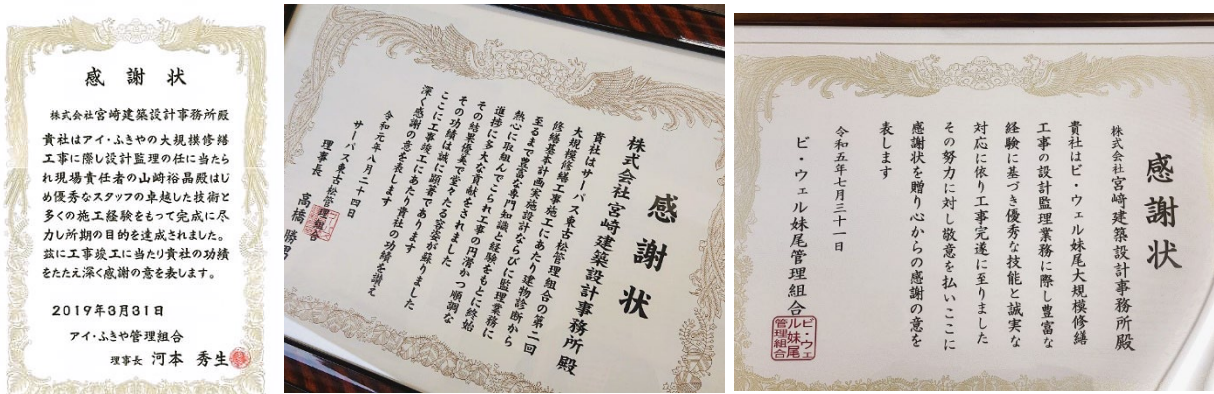 感謝状
株式会社宮﨑建築設計事務所殿
貴社はアイ・ふきやの大規模修繕
工事に際し設計監理の任に当たら
れ現場責任者の山﨑裕晶殿はじ
め優秀なスタッフの卓越した技術と
多くの施工経験をもって完成に尽
力し所期の目的を達成されました。
茲に工事竣工に当たり貴社の功績
をたたえ深く感謝の意を表します。
2019年3月31日
アイ・ふきや管理組合
理事長 河本 秀生
感謝状
株式会社 宮﨑建築設計事務所 殿
貴社はサーパス東古松管理組合の第二回
大規模修繕工事施工にあたり建物診断から
修繕基本計画実施設計ならびに監理業務に
至るまで豊富な専門知識と経験をもとに終始
熱心に取組んでこられ工事の円滑かつ順調な
進捗に多大な貢献をされました
その結果優美で堂々たる容姿が蘇りました
その功績は誠に顕著であります
ここに工事竣工にあたり貴社の功績を讃え
深く感謝の意を表します
令和元年八月二十四日
サーパス東古松管理組合
理事長 髙橋 勝
感謝状
株式会社 宮﨑建築設計事務所殿
貴社はビ・ウェル妹尾大規模修繕
工事の設計監理業務に際し豊富な
経験に基づき優秀な技能と誠実な
対応に依り工事完遂に至りました
その努力に対し敬意を払いここに
感謝状を贈り心からの感謝の意を
表します
令和五年七月三十一日
ビ・ウェル妹尾管理組合
ビ・ウェ
ル妹尾
管理組合